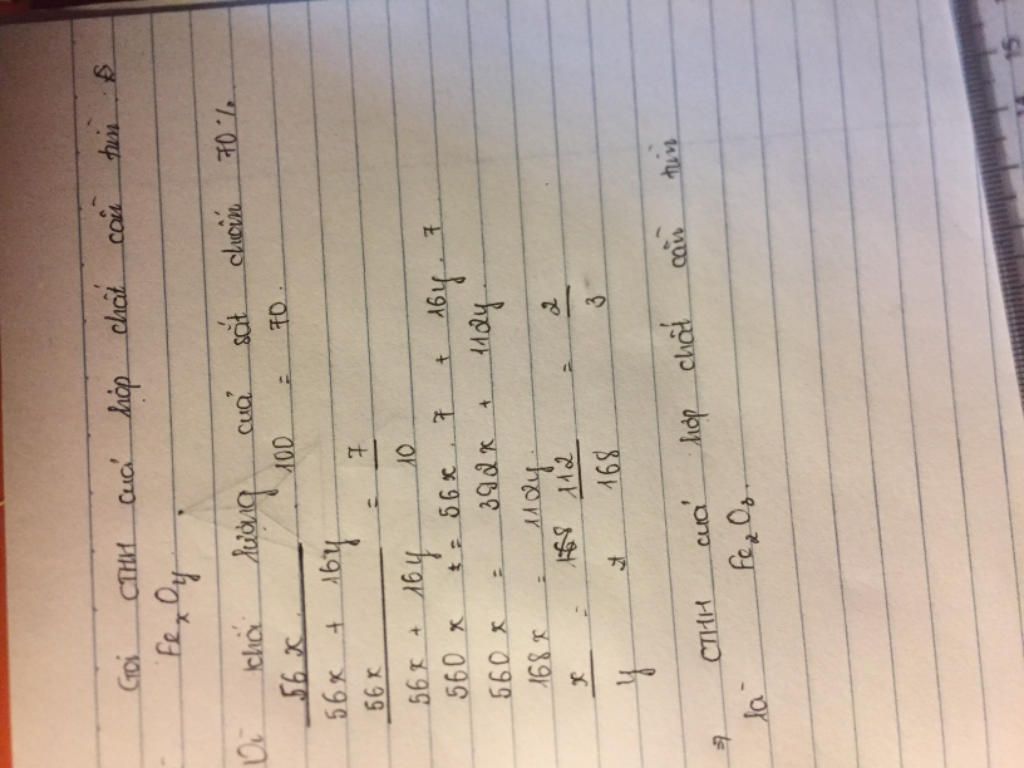 Gọi CTHH của hợp chất cần tìm là
FexOy
Vì khối lượng của sắt chiếm 70%
56x . 100 = 70.
56x + 16y
56x = 7
56x + 16y 10
560x = 56x . 7 + 16y . 7
560x = 392x + 112y.
168x = 112y.
x = 112 = 2
y 168 3
⇒ CTHH của hợp chất cần tìm
là Fe2O3.
15